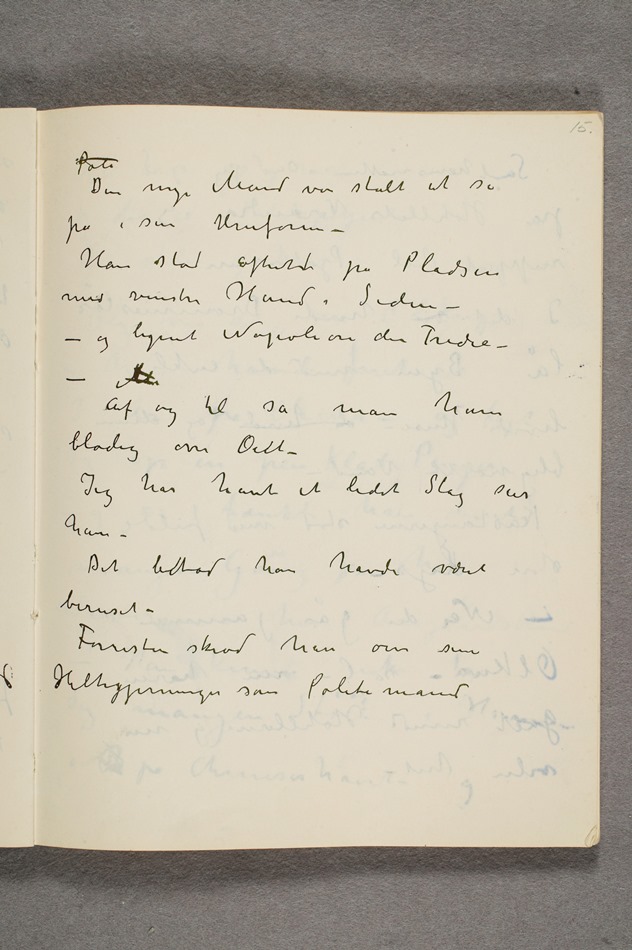 15.
Poli
Den nye Mand var stolt at se
på i sin Uniform –
Han stod opstadt på Pladsen
med venstre Hånd i Siden –
– og lignet Napoleon den Tredie –
–
Af og til så man ham
blodig over Øiet –
Jeg har havt et lidet Slag sier
han –
Det betød han havde været
beruset –
Forresten skrød han om sine
Heltegjerninger som Politimand